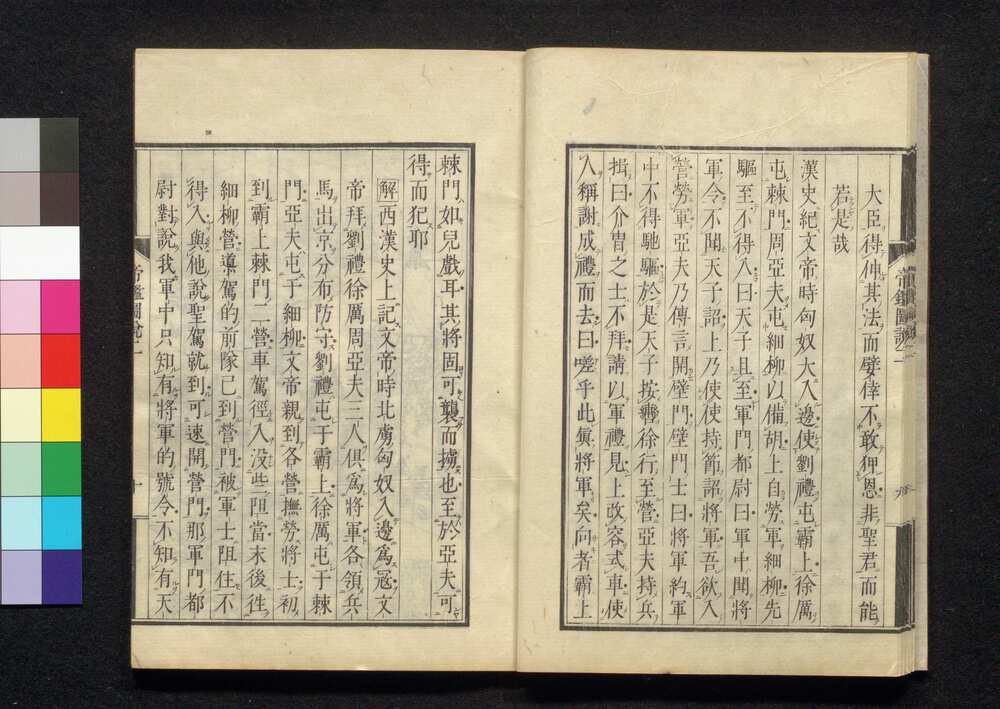 大臣得伸其法而嬖倖不敢狎恩非聖君而能
若是哉
漢史紀文帝時匈奴大入邊使劉禮屯霸上徐厲
屯棘門周亞夫屯細柳以備胡上自勞軍細柳先
驅至不得入曰天子且至軍門都尉曰軍中聞將
軍令不聞天子詔上乃使使持節詔將軍吾欲入
營勞軍亞夫乃傳言開壁門壁門士曰將軍約軍
中不得馳驅於是天子按轡徐行至營亞夫持兵
揖曰介冑之士不拜請以軍禮見上改容式車使
人稱謝成禮而去曰嗟乎此真將軍矣向者霸上
帝鑑圖說二
九
棘門如兒戲耳其將固可襲而擄也至於亞夫可
得而犯耶
解西漢史上記文帝時北虜匈奴入邊爲寇文
帝拜劉禮徐厲周亞夫三人俱爲將軍各領兵
馬出京分布防守劉禮屯于霸上徐厲屯于棘
門亞夫屯于細柳文帝親到各營撫勞將士初
到霸上棘門二營車駕徑入没些阻當末後徃
細柳營導駕的前隊已到營門被軍士阻住不
得入與他說聖駕就到可速開營門那軍門都
尉對說我軍中只知有將軍的號令不知有天
帝鑑圖說二
十